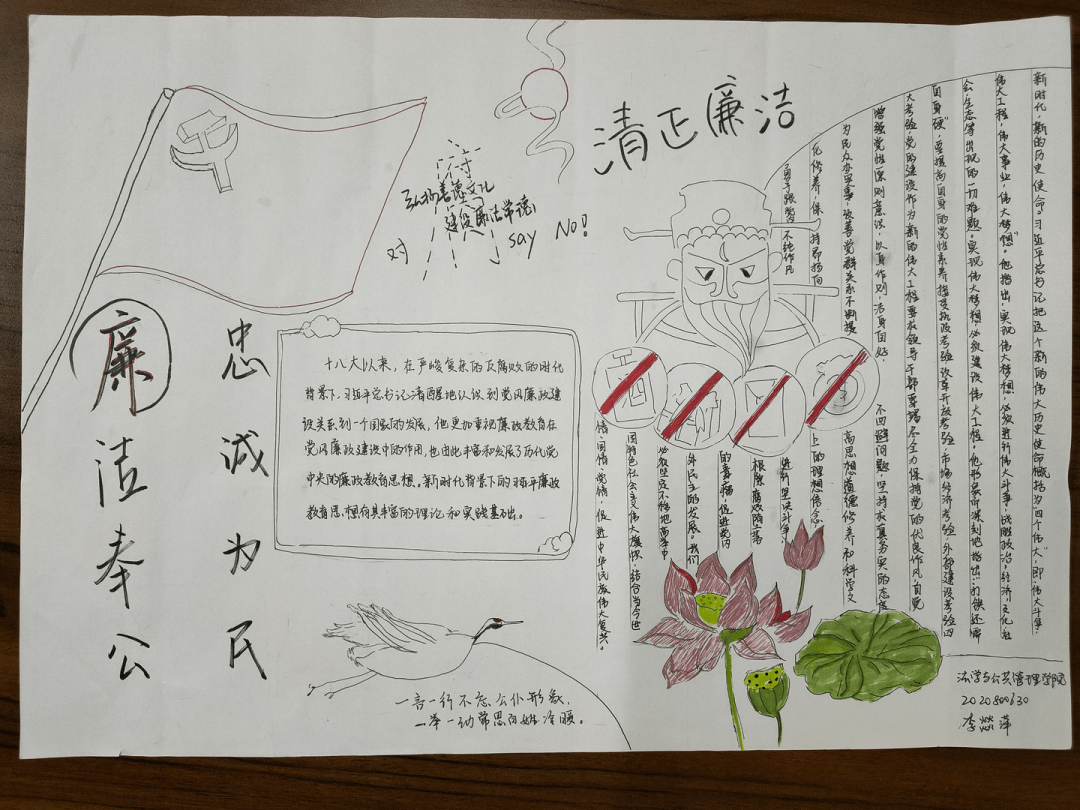 清正廉洁
弘扬善德文化
建设廉洁常德
对
say No!
廉洁奉公
忠诚为民
十八大以来,在严峻复杂的反腐败的时代
背景下,习近平总书记清醒地认识到党风廉政建
设关系到一个国家的发展,他更加重视廉政教育在
党风廉政建设中的作用,也由此丰富和发展了历代党
中央的廉政教育思想,新时代背景下的习近平廉政
教育思想有其丰富的理论和实践基础。
一言一行不忘公仆形象,
一举一动常思百姓冷暖。
新时代,新的历史使命。习近平总书记把这个新的伟大历史使命概括为"四个伟大",即"伟大斗争,
伟大工程,伟大事业,伟大梦想"。他指出:实现伟大梦想,必须进行伟大斗争,战胜政治,经济,文化,社
会,生态等出现的一切难题,实现伟大梦想,必须建设伟大工程,他形象而深刻地指出:"打铁还需
自身硬",要提高自身的党性素养接受执政考验,改革开放考验,市场经济考验,外部建设考验四
大考验,党的建设作为新的伟大工程要求领导干部要竭尽全力保持党的优良作风,自觉
增强党性原则意识,以身作则,洁身自好,不回避问题,坚持求真务实的态度
为民众办实事,改善党群关系不断提高思想道德修养和科学文
化修养,保持昂扬向上的理想信念,
勇于跟党不纯作风进行坚决斗争,
根除腐败的土壤
的毒瘤,促进党内
外民主的发展。我们
必须坚定不移地高举中
国特色社会主义伟大旗帜,结合当今世
情,国情,党情,促进中华民族伟大复兴。
法学与公共管理学院
2020800630